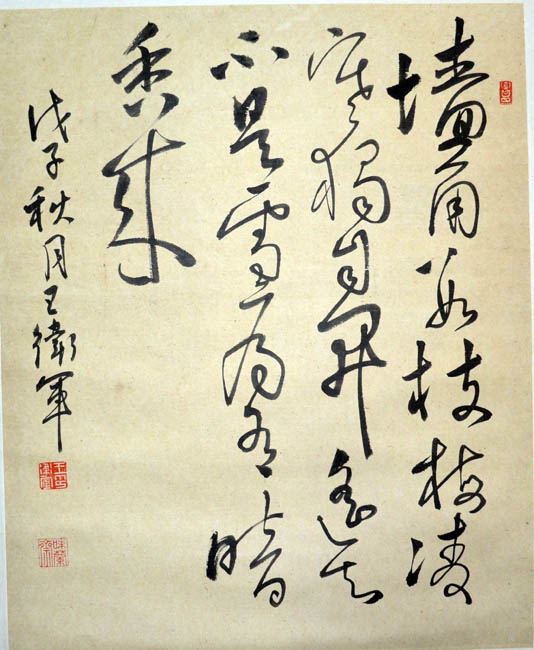 墙角数枝梅凌
寒独自开遥知
不是雪为有暗
香来
戊子秋月王卫军